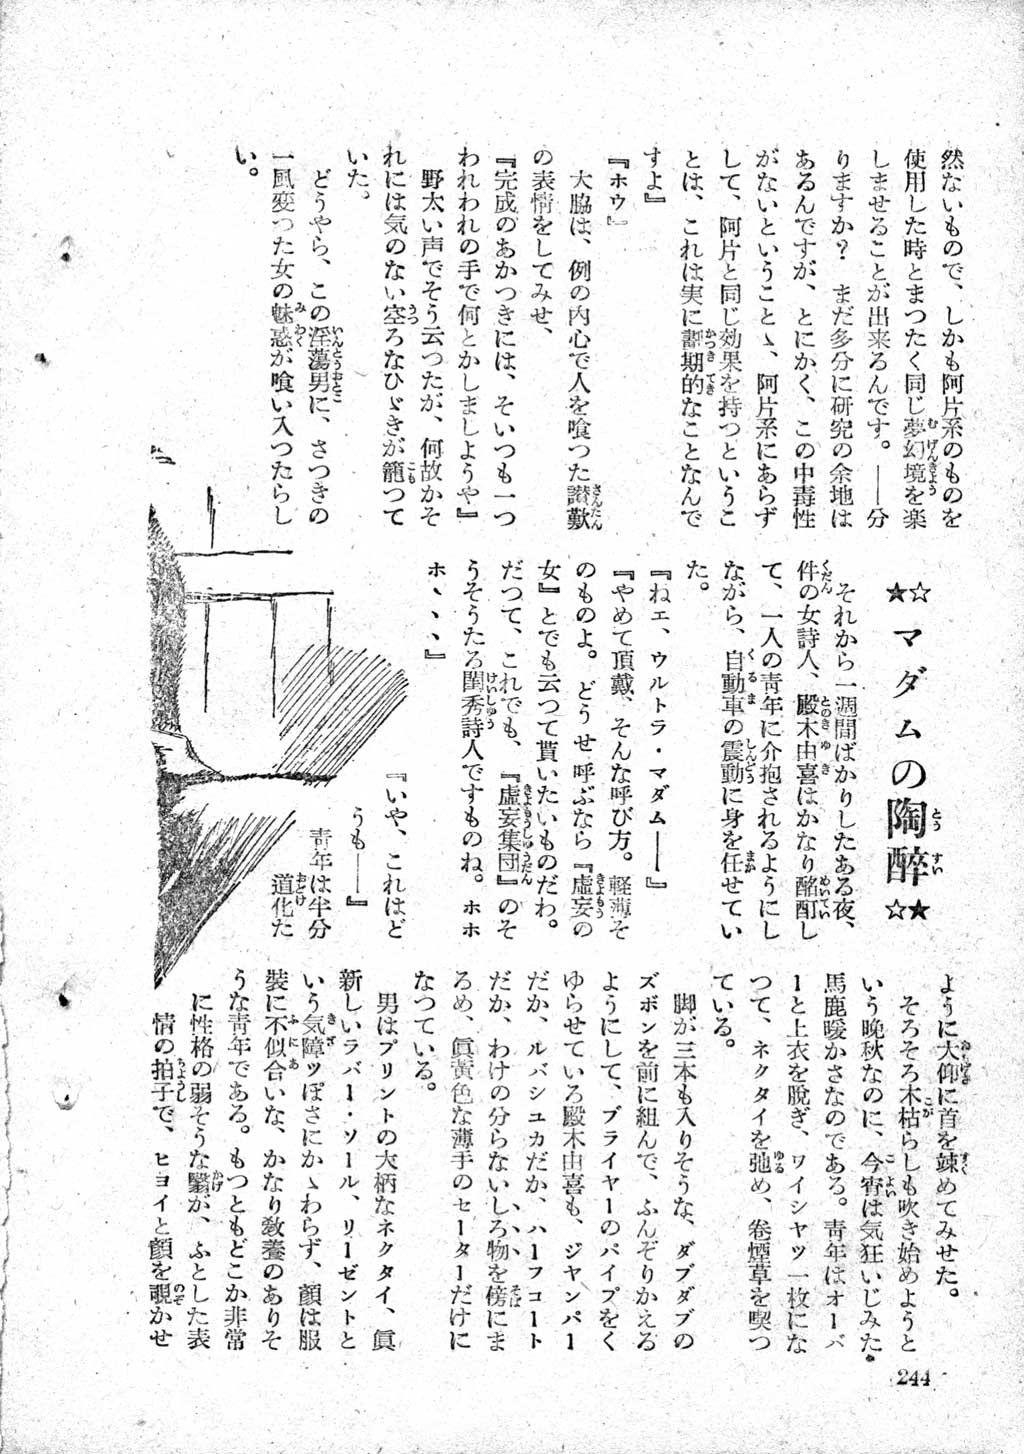 然ないもので、しかも阿片系のものを
使用した時とまつたく同じ夢幻境を楽
しませることが出来るんです。――分
りますか？　まだ多分に研究の余地は
あるんですが、とにかく、この中毒性
がないということゝ、阿片系にあらず
して、阿片と同じ効果を持つというこ
とは、これは実に劃期的なことなんで
すよ』
『ホウ』
大脇は、例の内心で人を喰つた讃歎
の表情をしてみせ、
『完成のあかつきには、そいつも一つ
われわれの手で何とかしましようや』
野太い声でそう云つたが、何故かそ
れには気のない空ろなひゞきが籠つて
いた。
どうやら、この淫蕩男に、さつきの
一風変つた女の魅惑が喰い入つたらし
い。
★☆マダムの陶醉☆★
それから一週間ばかりしたある夜、
件の女詩人、殿木由喜はかなり酩酊し
て、一人の青年に介抱されるようにし
ながら、自動車の震動に身を任せてい
た。
『ねエ、ウルトラ・マダム――』
『やめて頂戴、そんな呼び方。軽薄そ
のものよ。どうせ呼ぶなら『虚妄の
女』とでも云つて貰いたいものだわ。
だつて、これでも、『虚妄集団』のそ
うそうたる閨秀詩人ですものね。ホホ
ホ、、、』
『いや、これはど
うも――』
青年は半分
道化た
ように大仰に首を竦めてみせた。
そろそろ木枯らしも吹き始めようと
いう晩秋なのに、今宵は気狂いじみた
馬鹿暖かさなのである。青年はオーバ
ーと上衣を脱ぎ、ワイシヤツ一枚にな
つて、ネクタイを弛め、巻煙草を喫つ
ている。
脚が三本も入りそうな、ダブダブの
ズボンを前に組んで、ふんぞりかえる
ようにして、ブライヤーのパイプをく
ゆらせている殿木由喜も、ジヤンパー
だか、ルバシユカだか、ハーフコート
だか、わけの分らないしろ物を傍にま
るめ、眞黄色な薄手のセーターだけに
なつている。
男はプリントの大柄なネクタイ、眞
新しいラバー・ソール、リーゼントと
いう気障ツぽさにかゝわらず、顔は服
装に不似合いな、かなり敎養のありそ
うな青年である。もつともどこか非常
に性格の弱そうな翳が、ふとした表
情の拍子で、ヒヨイと顔を覗かせ
244